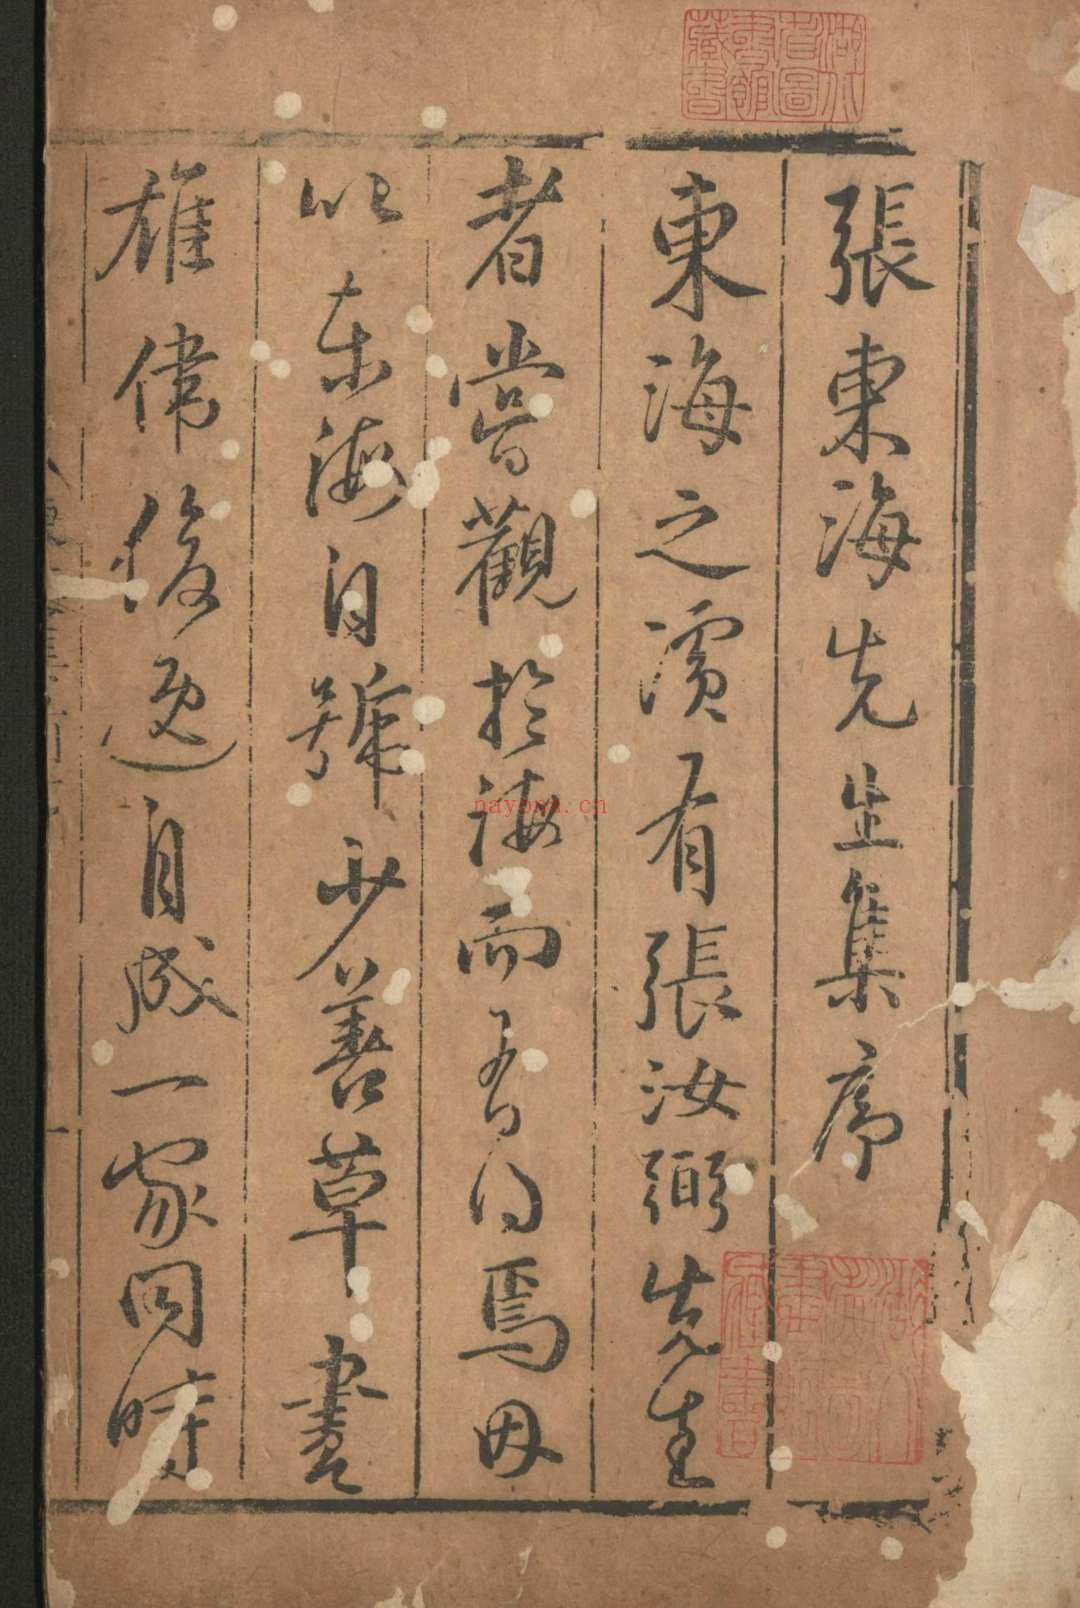 張東海先生集序
東海之濱有張汝弼先生
者嘗觀於海而有得焉因
以東海自號少善草書
雄偉俊逸自成一家同時
湖北省圖書館藏書
nayona.cn